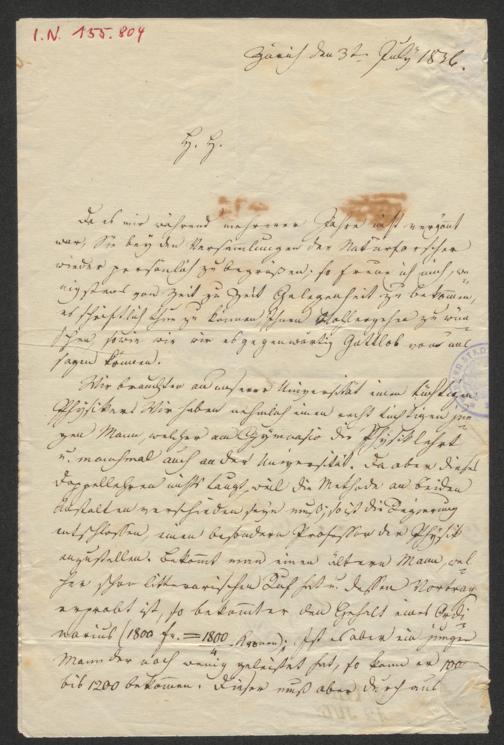 I.N. 155.804
Zürich den 3t July 1836.
H. H.
Da es mir während mehrerer Jahre nicht vergönt
war, Sie bey den Versamlungen der Naturforscher
wieder persönlich zu begrüssen, so freue ich mich, we
nigstens von Zeit zu Zeit Gelegenheit zu bekommen,
es schriftlich thun zu können Ihnen Wohlergehen zu wün
schen sowie wir es gegenwärtig Gottlob von uns
sagen können.
Wir brauchten an unserer Universität einen tüchtigen
Physiker. Wir haben nehmlich einen recht tüchtigen jun
gen Mann, welcher am Gymnasio die Physik lehrt
u. manchmal auch an der Universität. Da aber dieses
Doppellehren nichts taugt, weil die Methode an beiden
Anstalten verschieden seyn muß, so ist die Regierung
entschlossen, einen besondern Professor der Physik
anzustellen. Bekommt man einen ältern Mann, wel
cher schon litterarischen Ruf hat u. dessen Vortrag
erprobt ist, so bekommt er den Gehalt eines Ordi
narius (1800 fr. = 1800 Kronen); Ist es aber ein junger
Mann der noch wenig geleistet hat, so kann er
bis 1200 bekommen. Dieser muß aber durch aus